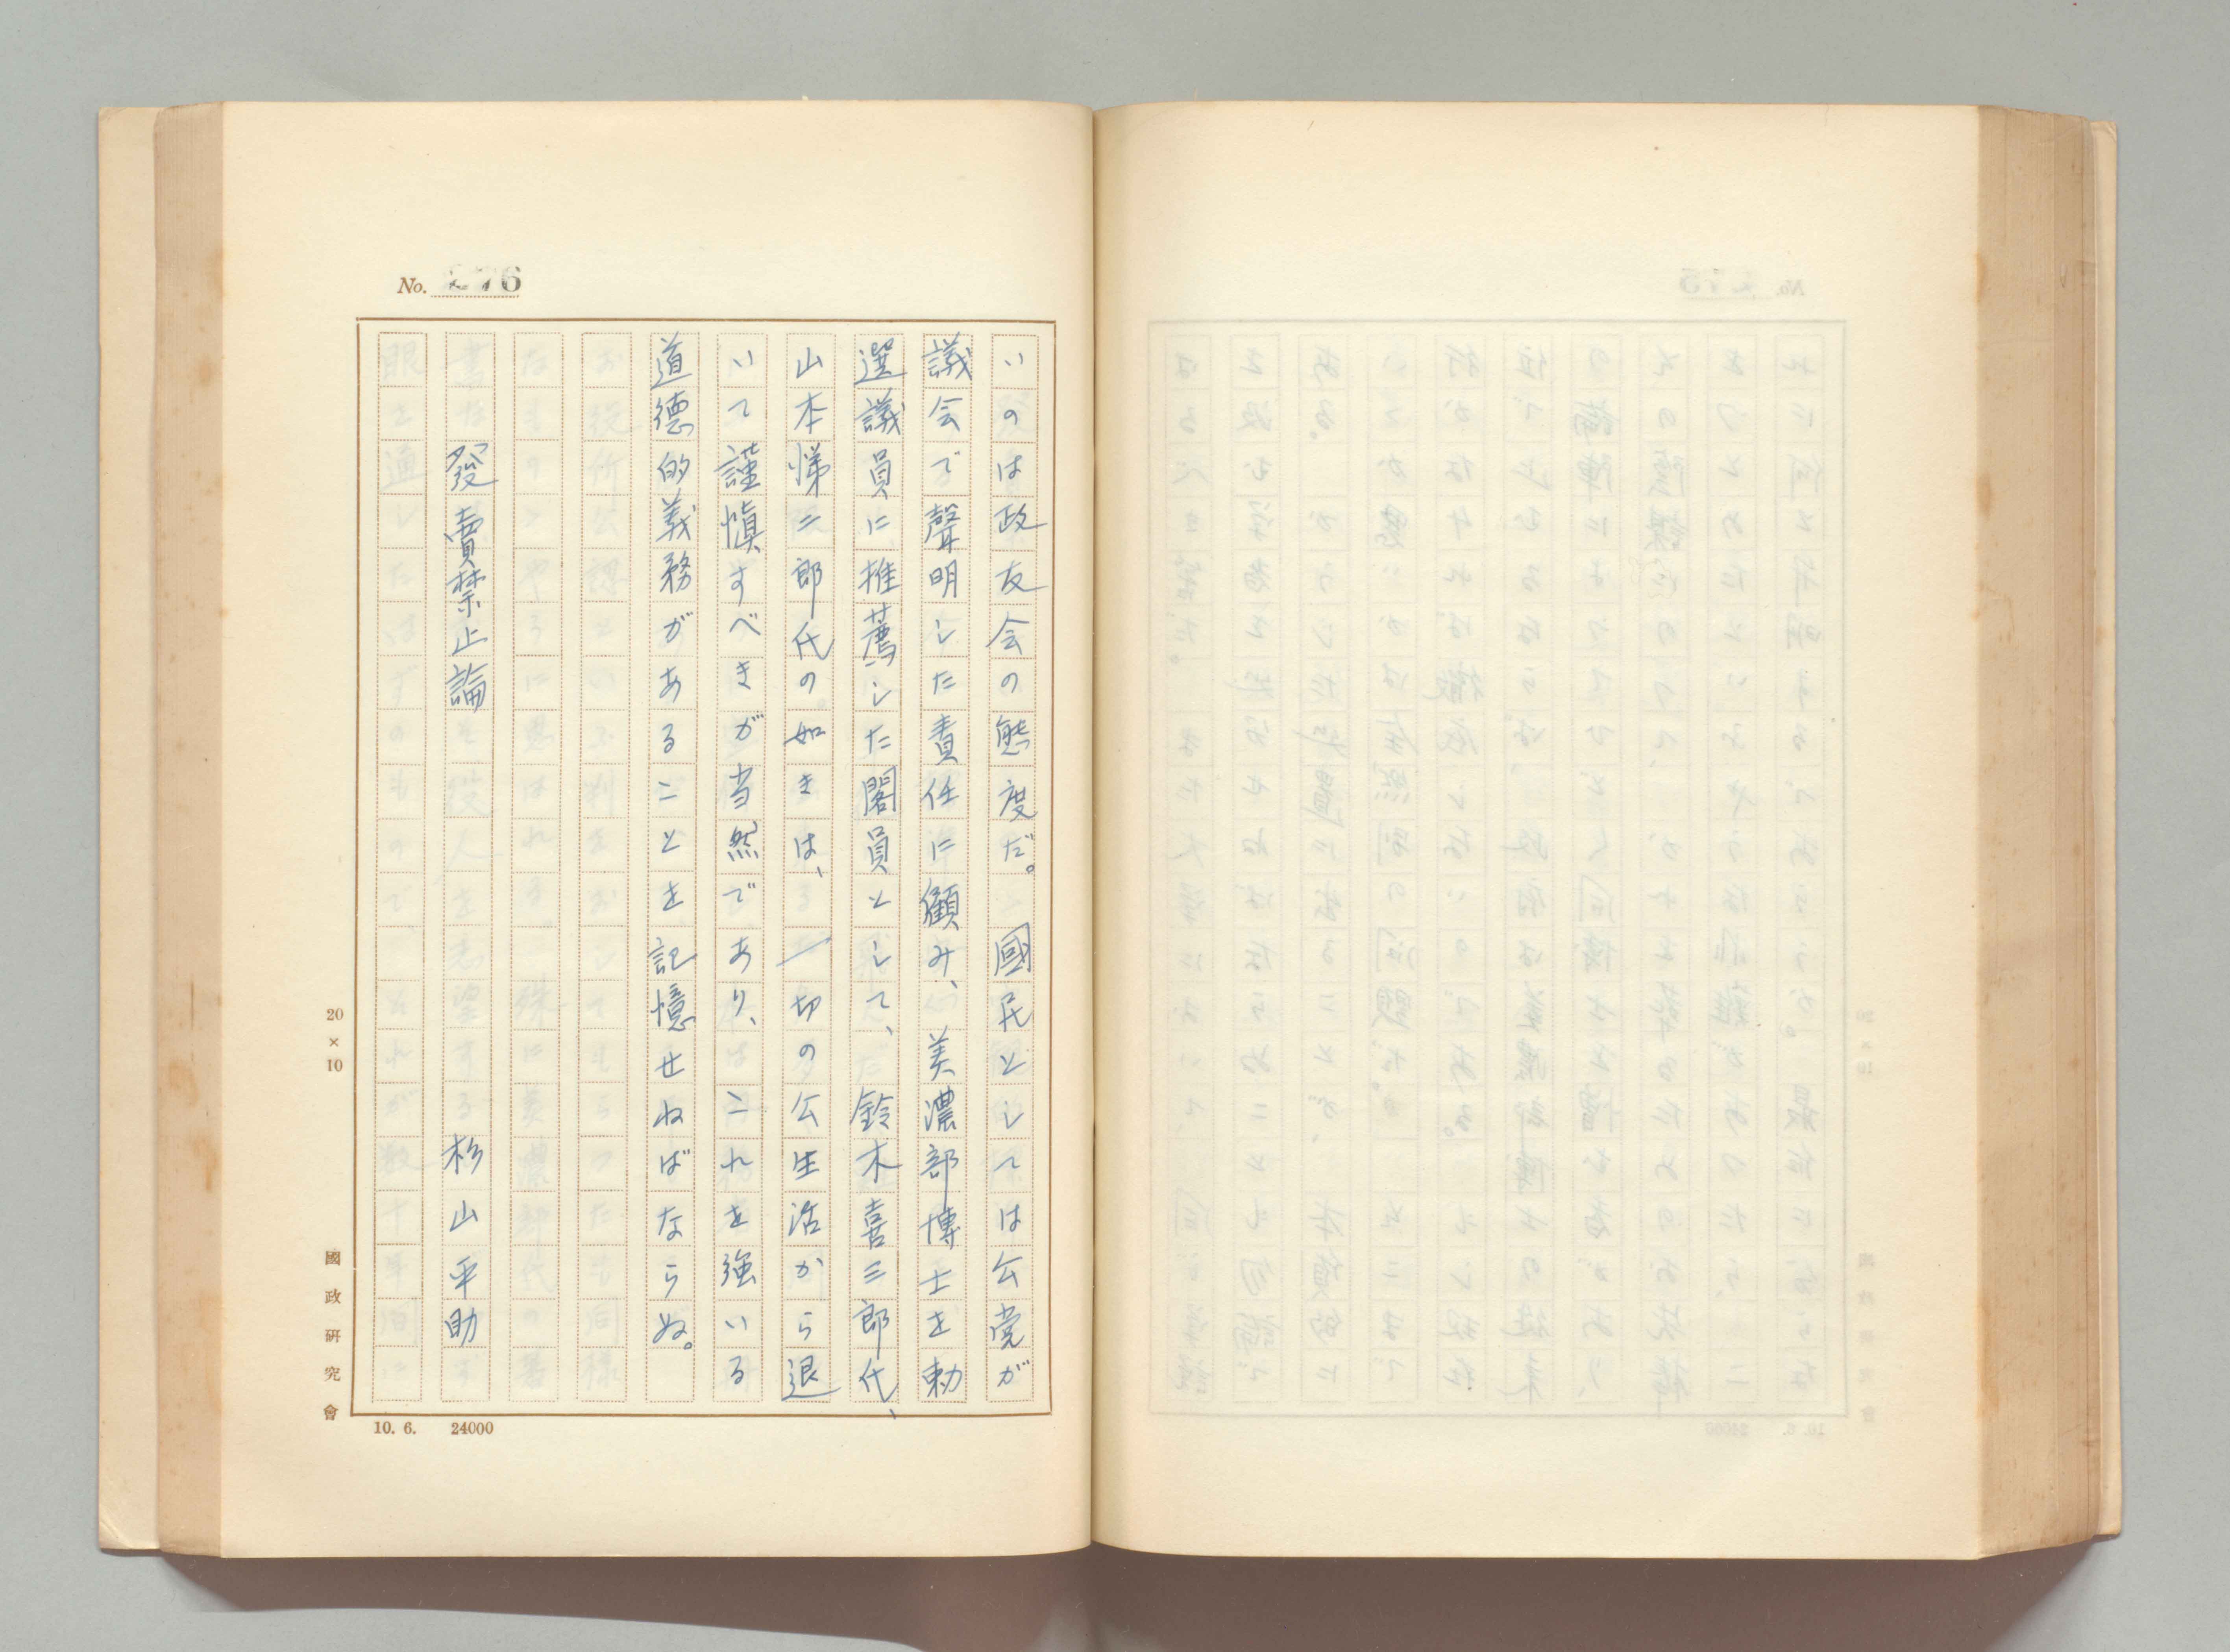 No. 276
いのは政友会の態度だ。國民としては公党が
議会で聲明した責任に顧み、美濃部博士を勅
選議員に推薦した閣員として、鈴木喜三郎氏、
山本悌二郎氏の如きは、一切の公生活から退
いて謹慎すべきが当然であり、これを強いる
道德的義務があることを記憶せねばならぬ。
發賣禁止論 杉山平助
20×10
國政研究會
10. 6. 24000